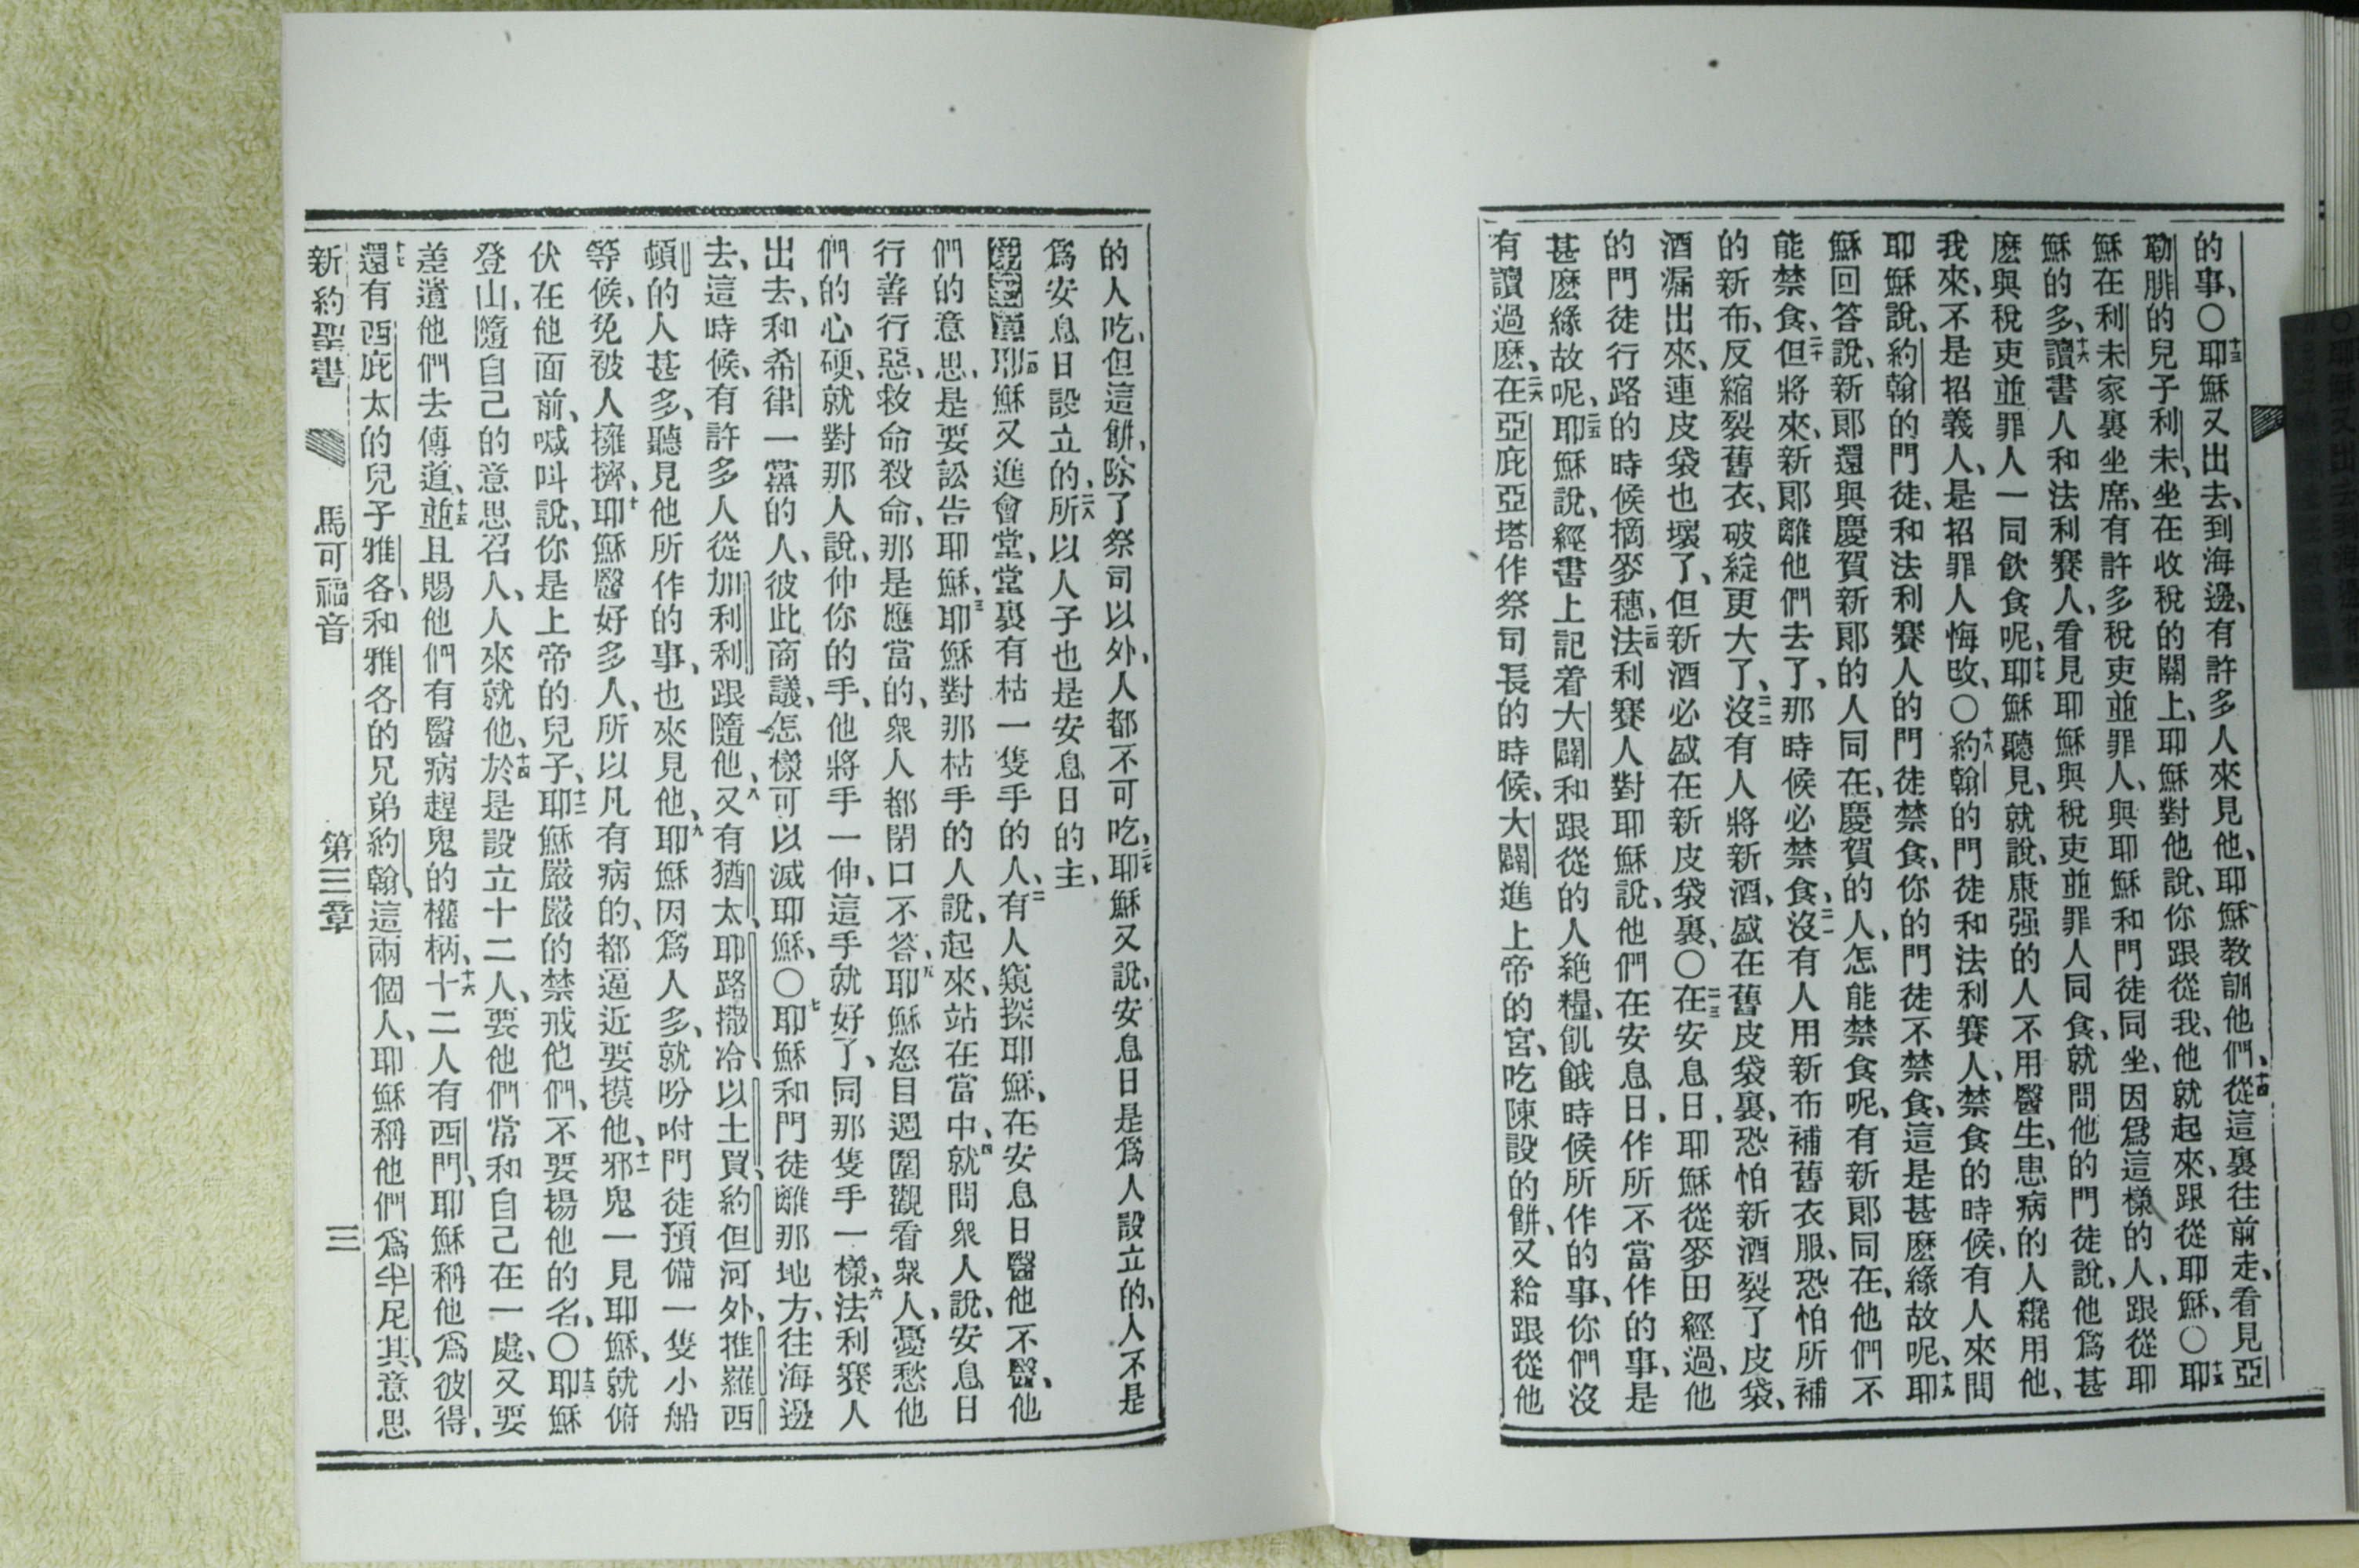 的事、〇十三耶穌又出去、到海邊、有許多人來見他、耶穌教訓他們、十四從這裏往前走、看見亞
勒腓的兒子利未、坐在收稅的關上、耶穌對他說、你跟從我、他就起來、跟從耶穌、〇十五耶
穌在利未家裏坐席、有許多稅吏並罪人、與耶穌和門徒同坐、因爲這樣的人、跟從耶
穌的多、十六讀書人和法利賽人、看見耶穌與稅吏並罪人同食、就問他的門徒說、他爲甚
麽與稅吏並罪人一同飲食呢、十七耶穌聽見、就說、康强的人不用醫生、患病的人纔用他、
我來、不是招義人、是招罪人悔改、〇十八約翰的門徒和法利賽人、禁食的時候、有人來問
耶穌說、約翰的門徒、和法利賽人的門徒禁食、你的門徒不禁食、這是甚麽緣故呢、十九耶
穌回答說、新郞還與慶賀新郞的人同在、慶賀的人、怎能禁食呢、有新郞同在、他們不
能禁食、二十但將來、新郞離他們去了、那時候必禁食、二一沒有人用新布補舊衣服、恐怕所補
的新布、反縮裂舊衣、破綻更大了、二二沒有人將新酒、盛在舊皮袋裏、恐怕新酒裂了皮袋、
酒漏出來、連皮袋也壞了、但新酒必盛在新皮袋裏、〇二三在安息日、耶穌從麥田經過、他
的門徒行路的時候摘麥穗、二四法利賽人對耶穌說、他們在安息日、作所不當作的事、是
甚麽緣故呢、二五耶穌說、經書上記着大闢和跟從的人絕糧、飢餓時候所作的事、你們沒
有讀過麽、二六在亞庇亞塔作祭司長的時候、大闢進上帝的宮、吃陳設的餅、又給跟從他
的人吃、但這餅、除了祭司以外、人都不可吃、二七耶穌又說、安息日是爲人設立的、人不是
爲安息日設立的、二八所以人子也是安息日的主、
第三章一耶穌又進會堂、堂裏有枯一隻手的人、二有人窺探耶穌、在安息日醫他不醫、他
們的意思、是要訟告耶穌、三耶穌對那枯手的人說、起來、站在當中、四就問衆人說、安息日
行善行惡、救命殺命、那是應當的、衆人都閉口不答、五耶穌怒目週圍觀看衆人、憂愁他
們的心硬、就對那人說、伸你的手、他將手一伸、這手就好了、同那隻手一樣、六法利賽人
出去、和希律一黨的人、彼此商議、怎樣可以滅耶穌、〇七耶穌和門徒離那地方、往海邊
去、這時候、有許多人從加利利跟隨他、八又有猶太、耶路撒冷、以土買、約但河外、推羅西
頓的人甚多、聽見他所作的事、也來見他、九耶穌因爲人多、就吩咐門徒預備一隻小船
等候、免被人擁擠、十耶穌醫好多人、所以凡有病的、都逼近要摸他、十一邪鬼一見耶穌、就俯
伏在他面前、喊叫說、你是上帝的兒子、十二耶穌嚴嚴的禁戒他們、不要揚他的名、〇十三耶穌
登山、隨自己的意思召人、人來就他、十四於是設立十二人、要他們常和自己在一處、又要
差遣他們去傳道、十五並且賜他們有醫病趕鬼的權柄、十六十二人有西門、耶穌稱他爲彼得、
十七還有西庇太的兒子雅各、和雅各的兄弟約翰、這兩個人、耶穌稱他們爲半尼其、意思
新約聖書　馬可福音　第三章　三